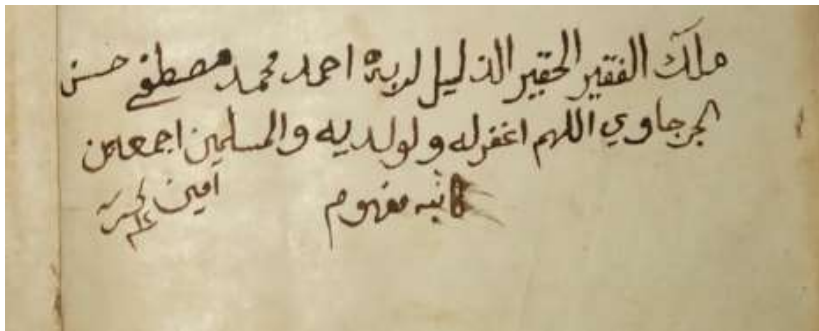 ملك الفقير الحقير الذليل لربه احمد محمد مصطفى حسن
الجرجاوي اللهم اغفر له ولولديه والمسلمين اجمعين
امين
كاتبه مفهوم